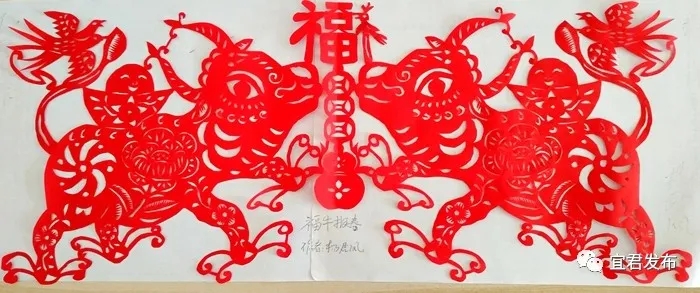 福
福牛报春
作者:
宜君发布